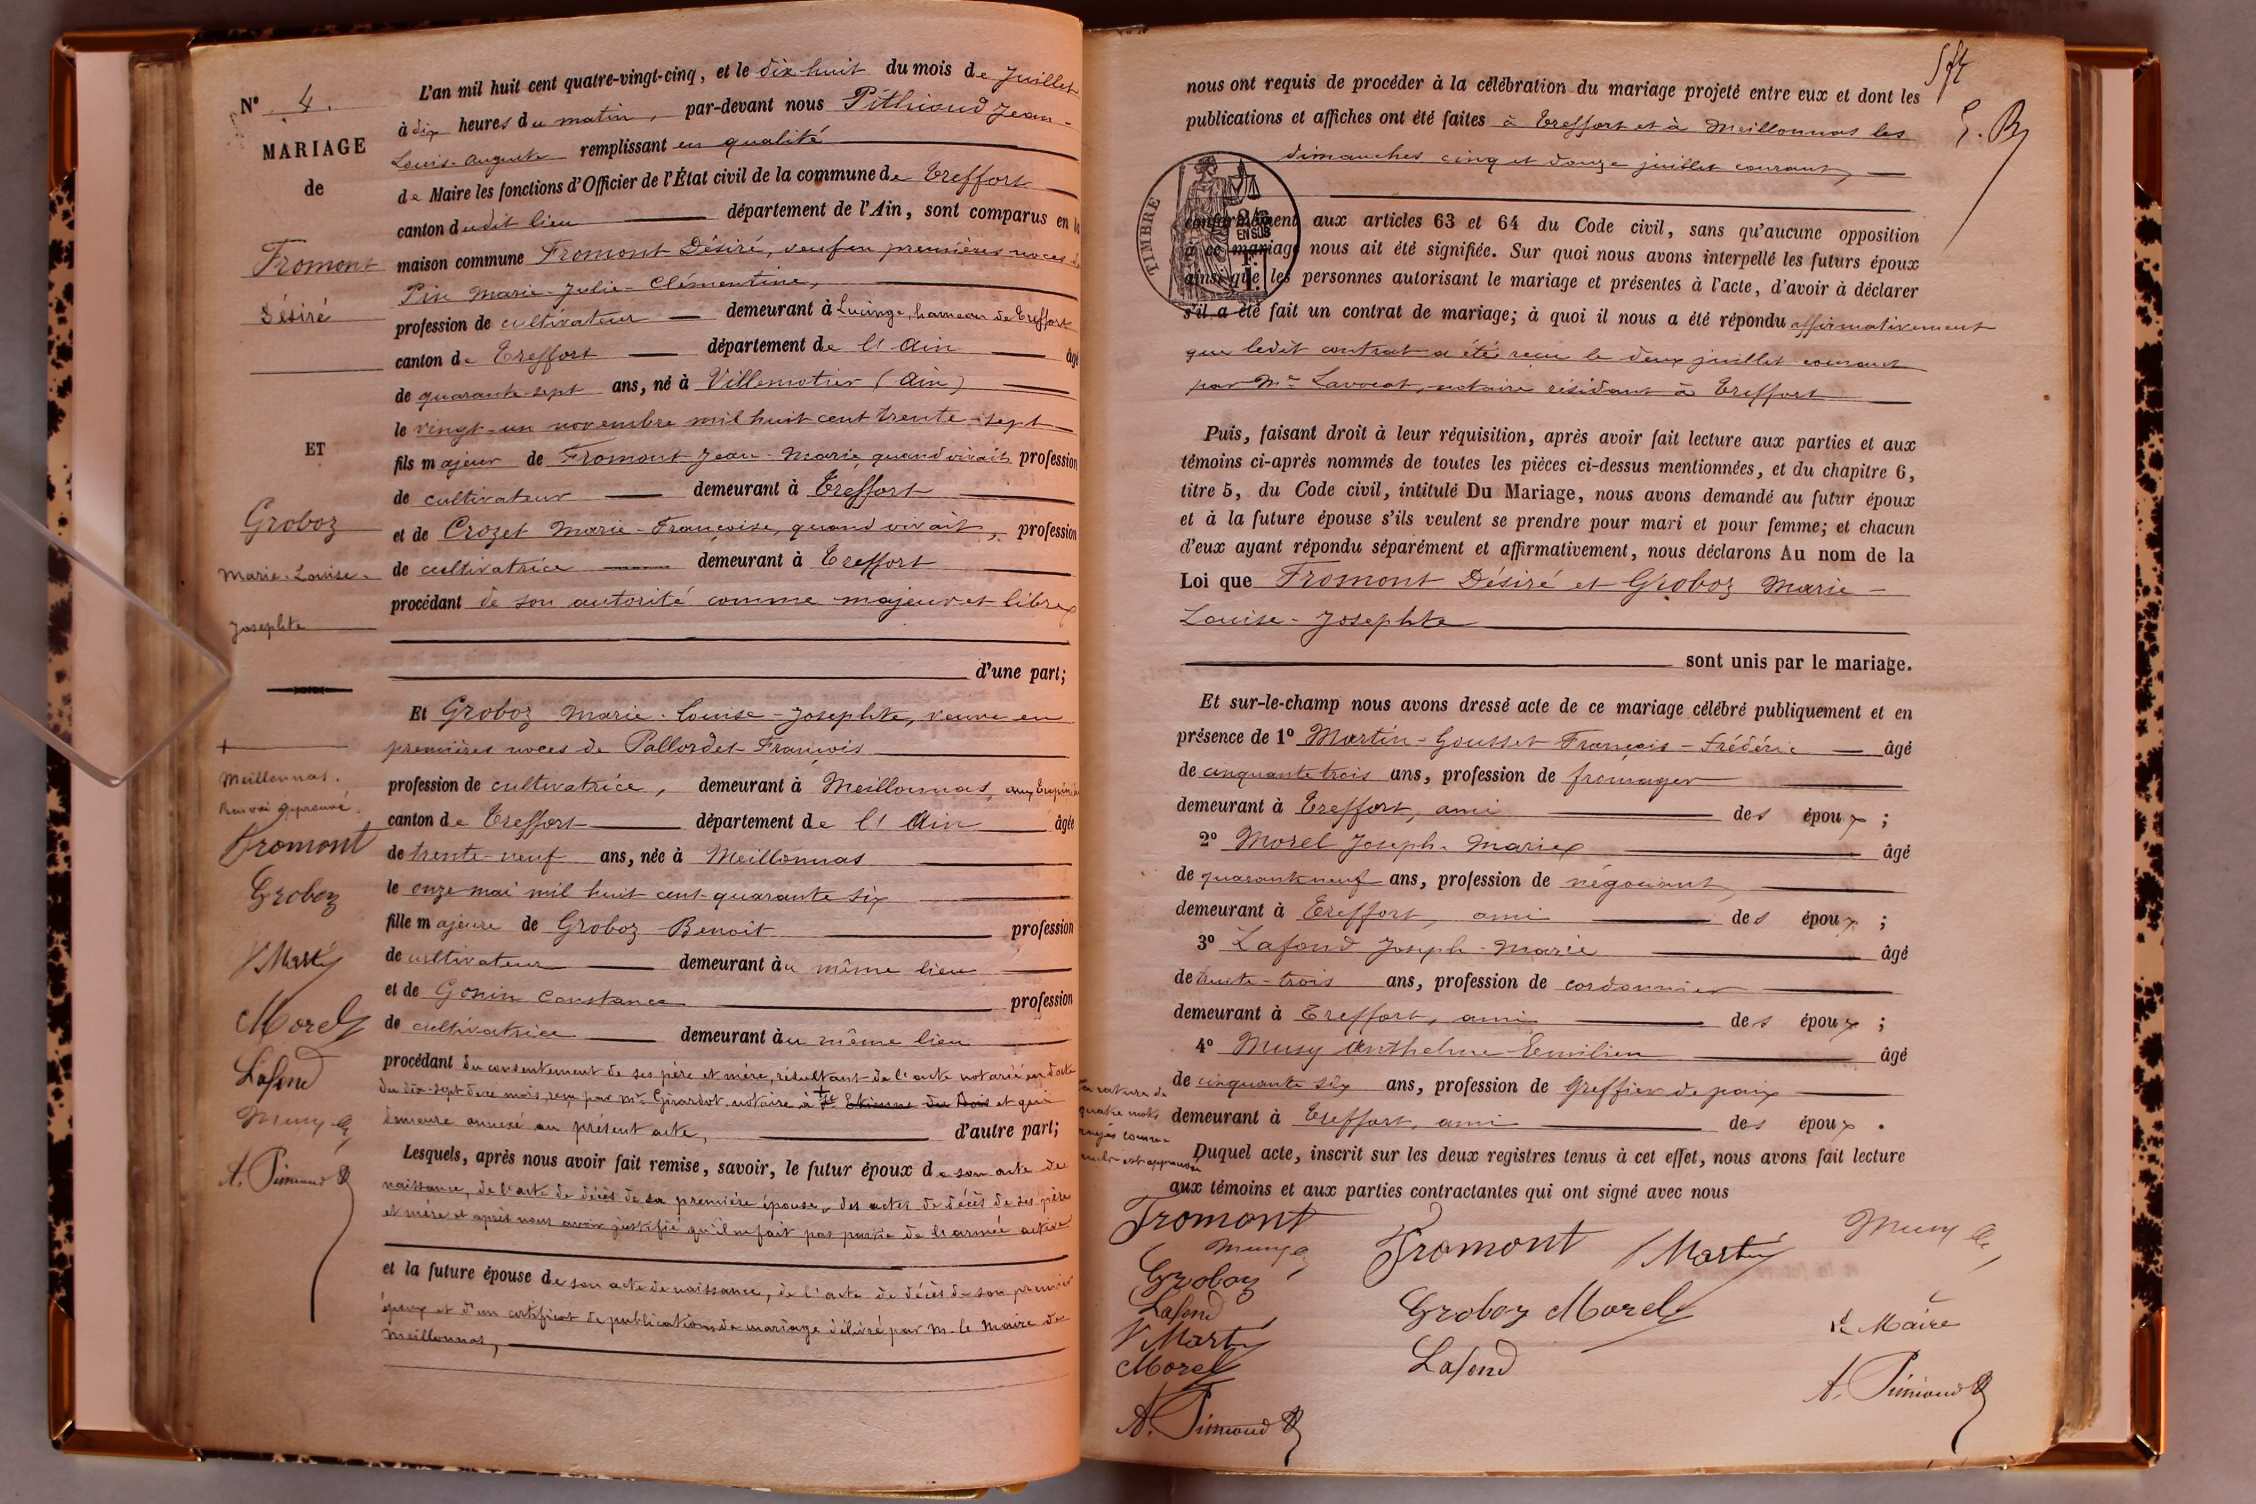 N° 4.
MARIAGE
de
Fromont
Désiré
ET
Groboz
Marie-Louise-
Josephte
Meillonnas.
Renvoi approuvé.
Fromont
Groboz
Morel
Lafond
Musy
L'an mil huit cent quatre-vingt-cinq, et le dix-huit du mois de Juillet
à dix heures du matin, par-devant nous Jean-
Louis-Auguste remplissant en qualité
de Maire les fonctions d'Officier de l'État civil de la commune de Treffort
canton dudit lieu département de l'Ain, sont comparus en la
maison commune Fromont Désiré, veuf en premières noces de
Pin Marie-Julie-Clémentine,
profession de cultivateur demeurant à Lucinge, hameau de Treffort
canton de Treffort département de l'Ain âgé
de quarante-sept ans, né à Villemotier (Ain)
le vingt-un novembre mil huit cent trente-sept
fils majeur de Fromont Jean-Marie, quand vivait profession
de cultivateur demeurant à Treffort
et de Crozet Marie-Françoise, quand vivait, profession
de cultivatrice demeurant à Treffort
procédant de son autorité comme majeur et libre
d'une part;
Et Groboz Marie-Louise-Josephte, veuve en
premières noces de Pallordet François
profession de cultivatrice, demeurant à Meillonnas,
canton de Treffort département de l'Ain âgée
de trente-neuf ans, née à Meillonnas
le onze mai mil huit cent quarante six
fille majeure de Groboz Benoit profession
de cultivateur demeurant au même lieu
et de Gonin Constance profession
de cultivatrice demeurant au même lieu
procédant du consentement de ses père et mère, résultant de l'acte notarié en date
du dix-sept de ce mois, reçu par Me Girardot, notaire à + St Etienne du Bois et qui
demeure annexé au présent acte, d'autre part;
Lesquels, après nous avoir fait remise, savoir, le futur époux de son acte de
naissance, de l'acte de décès de sa première épouse, des actes de décès de ses père
et mère et après nous avoir justifié qu'il ne fait pas partie de l'armée active
et la future épouse de son acte de naissance, de l'acte de décès de son premier
époux et d'un certificat de publications de mariage délivré par M. le Maire de
Meillonnas,
nous ont requis de procéder à la célébration du mariage projeté entre eux et dont les
publications et affiches ont été faites à Treffort et à Meillonnas les
dimanches cinq et douze juillet courant,
TIMBRE
conformément aux articles 63 et 64 du Code civil, sans qu'aucune opposition
à ce mariage nous ait été signifiée. Sur quoi nous avons interpellé les futurs époux
ainsi que les personnes autorisant le mariage et présentes à l'acte, d'avoir à déclarer
s'il a été fait un contrat de mariage; à quoi il nous a été répondu affirmativement
que ledit contrat a été reçu le deux juillet courant
par Me Lavocat, notaire résidant à Treffort
Puis, faisant droit à leur réquisition, après avoir fait lecture aux parties et aux
témoins ci-après nommés de toutes les pièces ci-dessus mentionnées, et du chapitre 6,
titre 5, du Code civil, intitulé Du Mariage, nous avons demandé au futur époux
et à la future épouse s'ils veulent se prendre pour mari et pour femme; et chacun
d'eux ayant répondu séparément et affirmativement, nous déclarons Au nom de la
Loi que Fromont Désiré et Groboz Marie-
Louise-Josephte
sont unis par le mariage.
Et sur-le-champ nous avons dressé acte de ce mariage célébré publiquement et en
présence de 1° Martin-Gousset François-Frédéric âgé
de cinquante trois ans, profession de fromager
demeurant à Treffort, ami des époux;
2° Morel Joseph-Marie âgé
de quarante neuf ans, profession de négociant,
demeurant à Treffort, ami des époux;
3° Lafond Joseph-Marie âgé
de trente-trois ans, profession de cordonnier
demeurant à Treffort, ami des époux;
4° Musy Anthelme-Emilien âgé
de cinquante six ans, profession de Greffier de paix
demeurant à Treffort, ami des époux.
La rature de
quatre mots
rayés comme
nuls est approuvée
Duquel acte, inscrit sur les deux registres tenus à cet effet, nous avons fait lecture
aux témoins et aux parties contractantes qui ont signé avec nous
Fromont
Musy
Groboz
Lafond
Morel
Fromont
Groboz Morel
Lafond
Musy
Le Maire